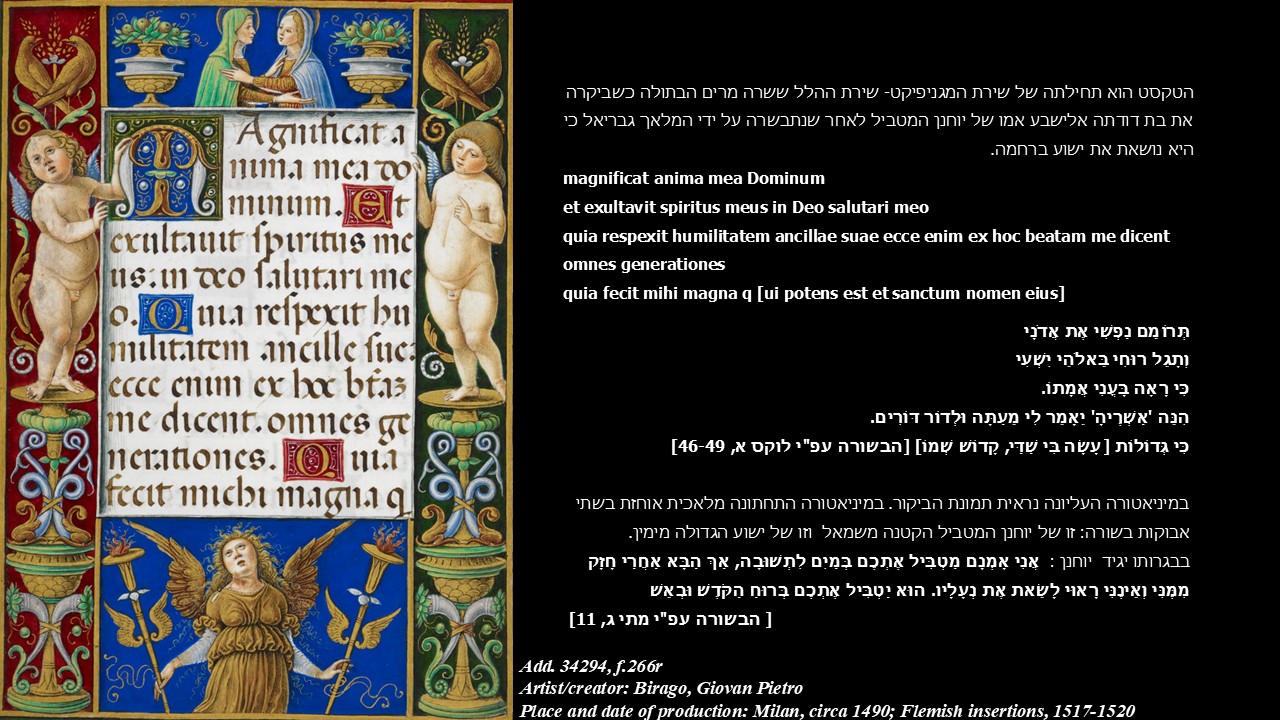 Magnificat a
nima mea do
minum. Et
exultavit spiritus me
us: in deo salutari me
o. Quia respexit hu
militatem ancille sue:
ecce enim ex hoc
me dicent. omnes ge
nerationes. Quia
fecit michi magna q
הטקסט הוא תחילתה של שירת המגניפיקט- שירת ההלל ששרה מרים הבתולה כשביקרה
את בת דודתה אלישבע אמו של יוחנן המטביל לאחר שנתבשרה על ידי המלאך גבריאל כי
היא נושאת את ישוע ברחמה.
magnificat anima mea Dominum
et exultavit spiritus meus in Deo salutari meo
quia respexit humilitatem ancillae suae ecce enim ex hoc beatam me dicent
omnes generationes
quia fecit mihi magna q [ui potens est et sanctum nomen eius]
תְּרוֹמֵם נַפְשִׁי אֶת אֲדֹנָי
וְתָגֵל רוּחִי בֵּאלֹהֵי יִשְׁעִי
כִּי רָאָה בָּעֳנִי אֲמָתוֹ.
הִנֵּה 'אַשְׁרֶיהָ' יֵאָמֵר לִי מֵעַתָּה וּלְדוֹר דּוֹרִים.
כִּי גְּדוֹלוֹת [עָשָׂה בִּי שַׁדַּי, קָדוֹשׁ שְׁמוֹ] [הבשורה עפ"י לוקס א, 46-49]
במיניאטורה העליונה נראית תמונת הביקור. במיניאטורה התחתונה מלאכית אוחזת בשתי
אבוקות בשורה: זו של יוחנן המטביל הקטנה משמאל וזו של ישוע הגדולה מימין.
בבגרותו יגיד יוחנן : אֲנִי אָמְנָם מַטְבִּיל אֶתְכֶם בְּמַיִם לִתְשׁוּבָה, אַךְ הַבָּא אַחֲרַי חָזָק
מִמֶּנִּי וְאֵינֶנִּי רָאוּי לָשֵׂאת אֶת נְעָלָיו. הוּא יַטְבִּיל אֶתְכֶם בְּרוּחַ הַקֹּדֶשׁ וּבְאֵשׁ
[ הבשורה עפ"י מתי ג, 11]
Add. 34294, f.266r
Artist/creator: Birago, Giovan Pietro
Place and date of production: Milan, circa 1490; Flemish insertions, 1517-1520